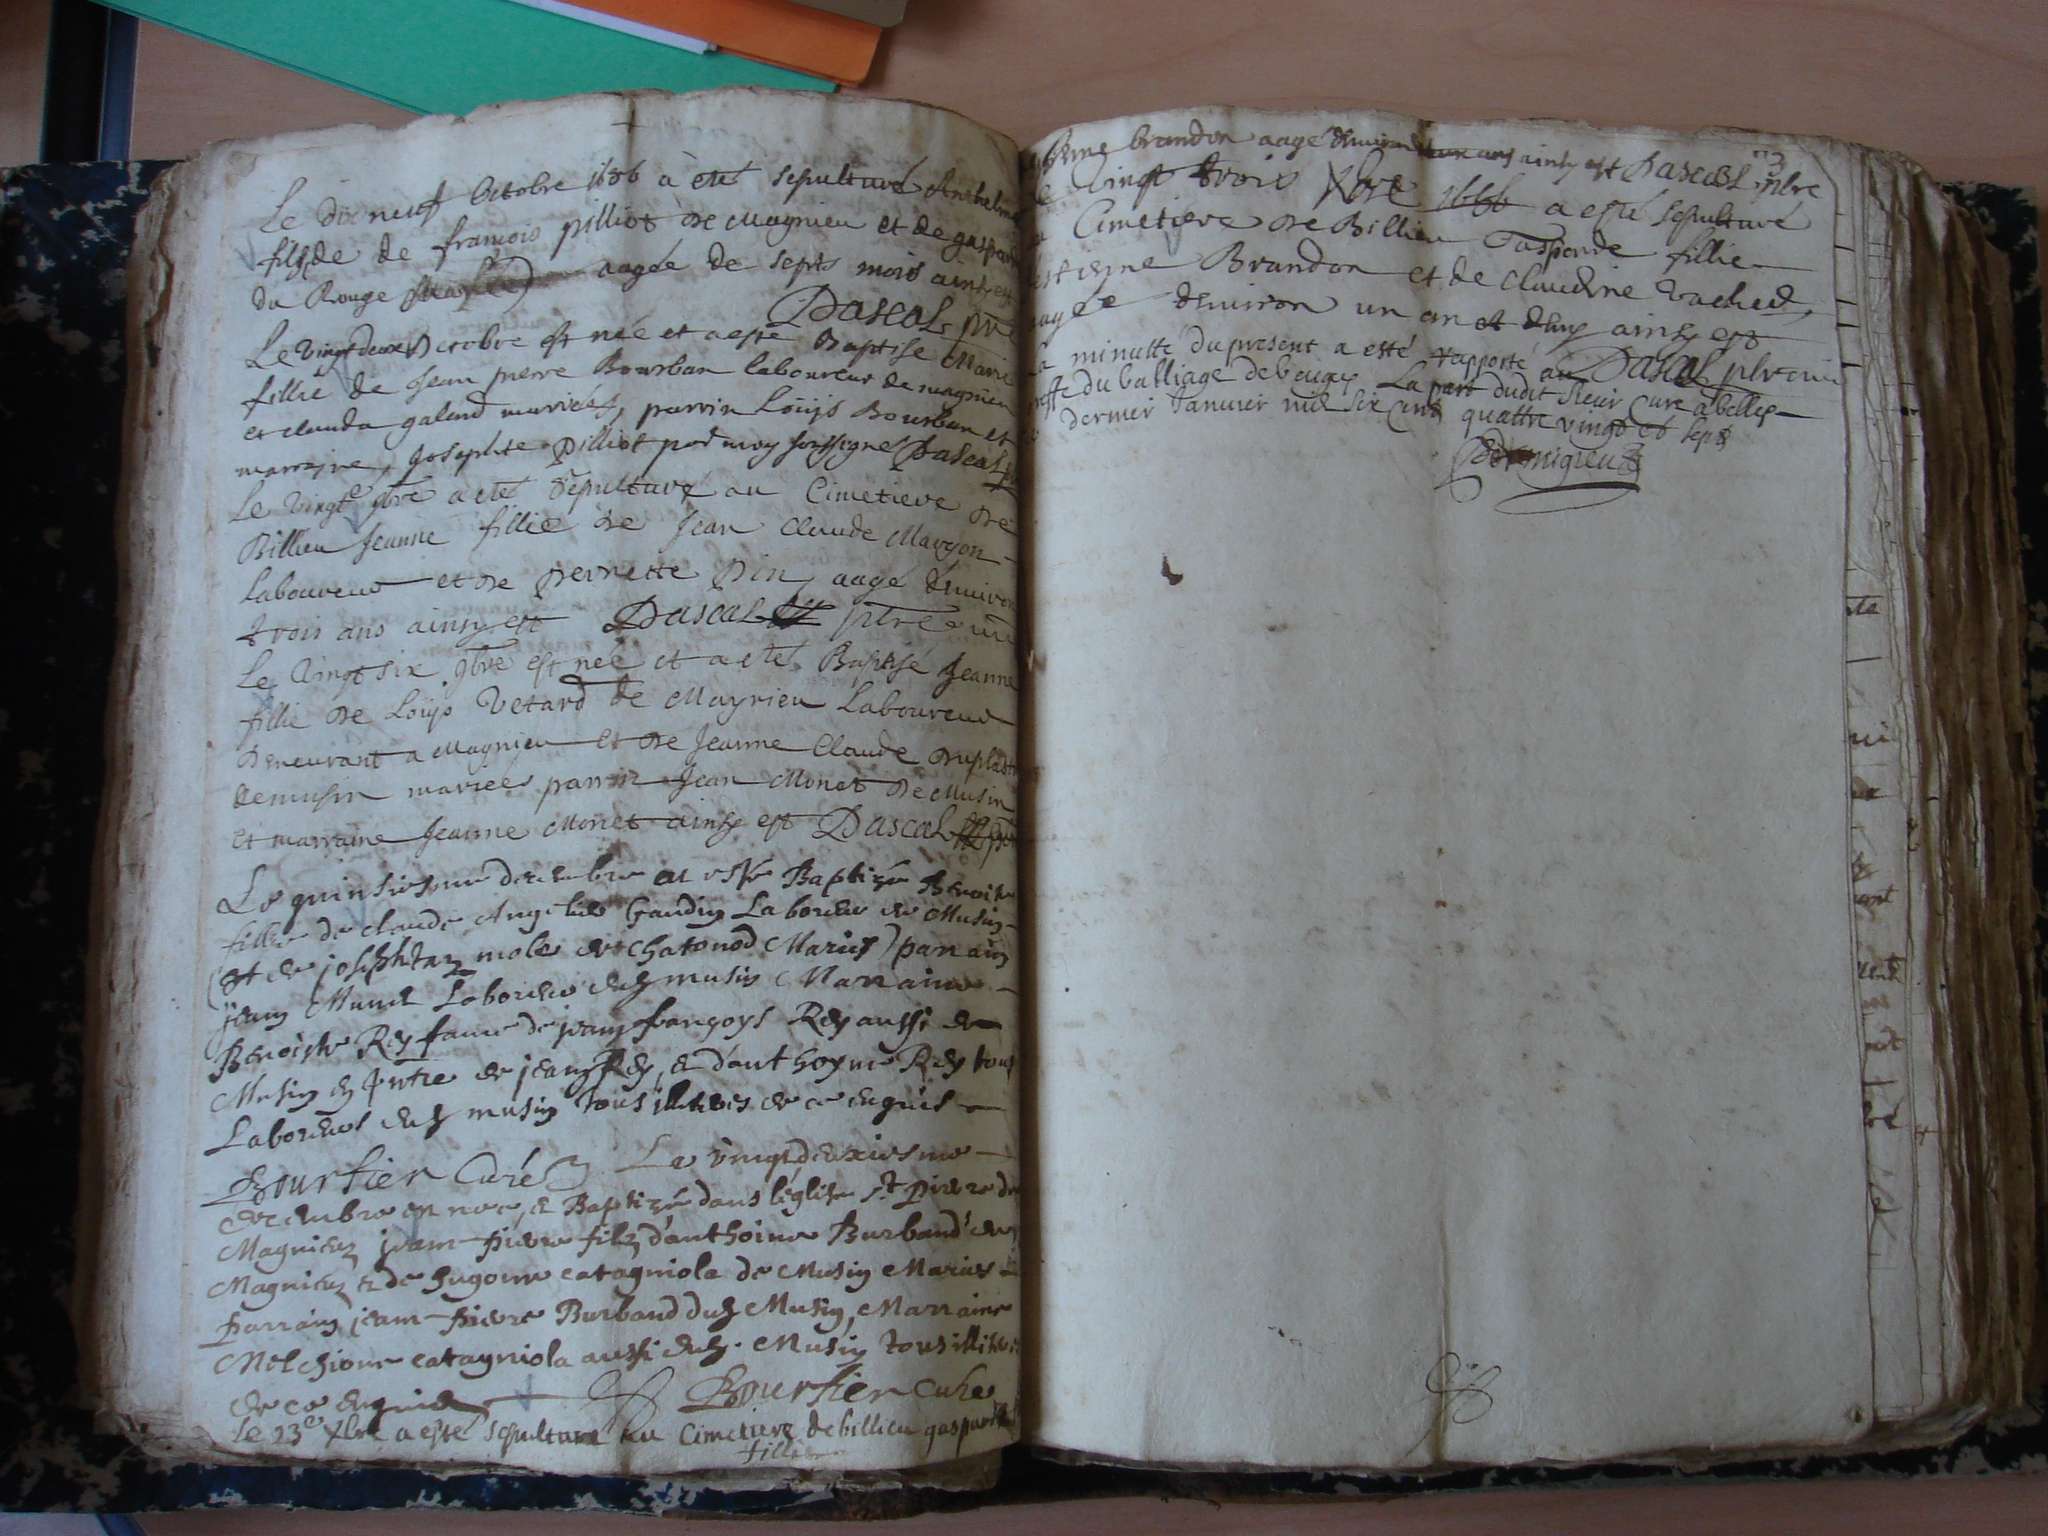 Le dixneuf Octobre 1686 à eté sepulturé Anthelme
fils de de françois pilliot de Magnieu et de gaspar
du Rouge aagée de septs mois ainsy est
Pascal pre
Le vingt deux octobre est née et a esté Baptise Marie
fillie de Jean pierre Bourban laboureur de magnieu
et clauda galand mariés, parrin Loüys Bourban et
marreine, Josephte Pilliot par moy soussigné Pascal
Le vingte 9bre a eté sepulturé au Cimetiere de
Billieu Jeanne fillie de Jean Claude Maryon
Laboureur et de pernette Pin aagé d'environ
trois ans ainsy est Pascal ptre
Le Vingt six 9bre est née et a eté Baptisé Jeanne
fillie de Loüys Vetard de Mayrieu Laboureur
demeurant a Magnieu et de Jeanne Claude
demusin mariees parrin Jean Monet de Musin
et marraine Jeanne Monet ainsy est Pascal
Le quinsiesme decembre at esté Baptizé Benoite
fillie de claude Angelin Gaudin Laboreur de Musin
et de mole de Chatonod Mariés parrain
jean Munet Laboreur dud musin Marraine
Benoiste Rey fame de jean françoys Rey aussi de
Musin de jean Rey, & d'anthoyne Rey tous
Laboreurs dud musin tous illiteres de ce enquis
Boursier Curé Le vingtdeuxiesme
decembre est nee, & Baptizé dans leglise St Pierre de
Magnieu jean pierre filz d'anthoine Burband de
Magnieu & de hugonne catagniola de Musin Mariés
parrain jean pierre Burband dud Musin, Marraine
Melchionne catagniola aussi dud. Musin tous illiteres
de ce enquis Boursier Curé
Le 23e Xbre a esté sepulturé au Cimetiere de billieu gasparde
fillie
brandon aagé d'environ ainsy est Pascal ptre
Le Vingt trois Xbre 1686 a esté sepulturé
au Cimetiere de Billieu Gasparde fillie
d'estienne Brandon et de Claudine Vachod
aagée d'environ un an et demy ainsy est
Pascal ptre
La minutte du present a esté rapporté au
greffe du balliage de beugey La part dudit sieur Curé a belley
le dernier Janvier mil six cent quattre vingt et sept